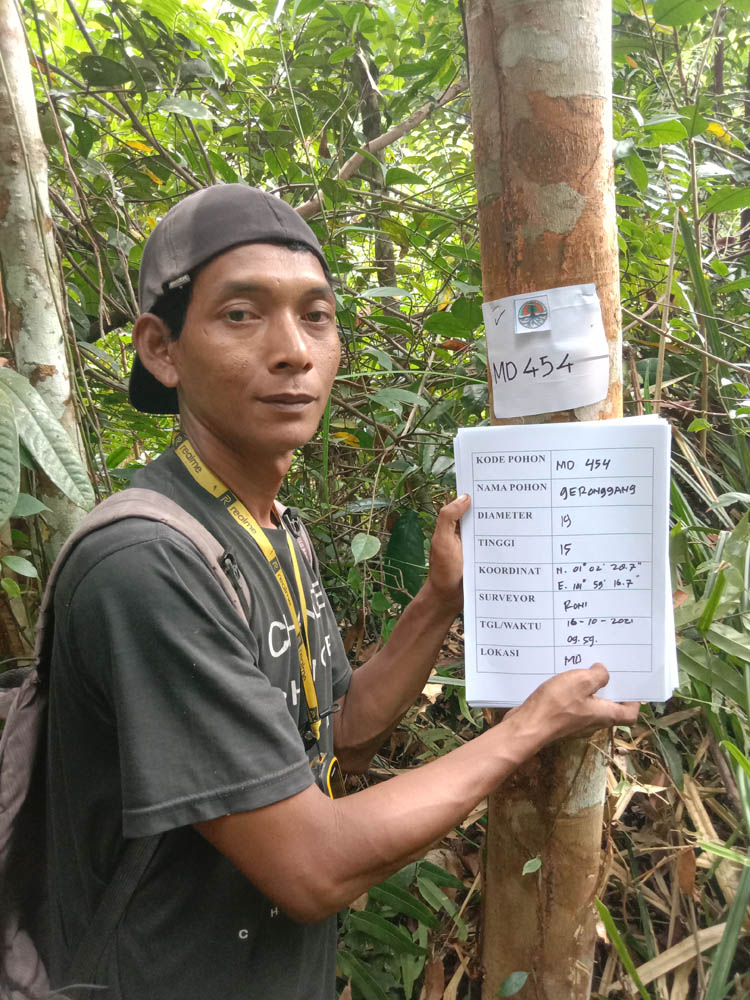 MD 454
KODE POHON MD 454
NAMA POHON GERONGGANG
DIAMETER 19
TINGGI 15
KOORDINAT N. 01° 02' 20.7"
E. 101° 59' 16.7"
SURVEYOR RONI
TGL/WAKTU 16-10-2021
09.59.
LOKASI MD
realme
realme